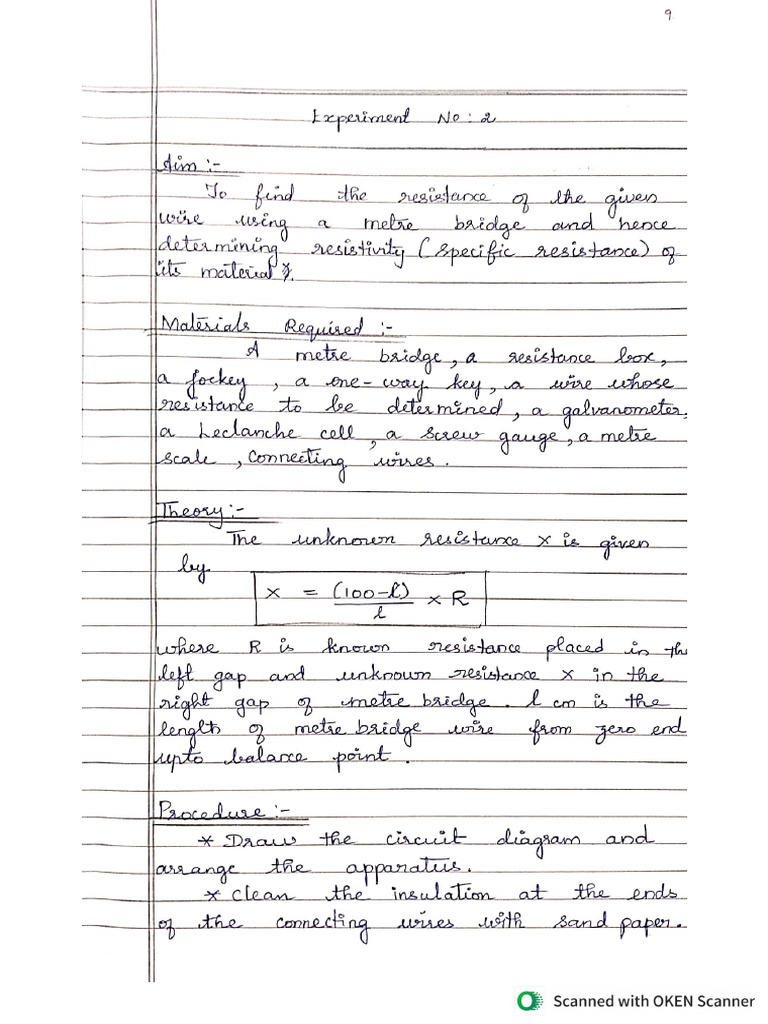 9
Experiment No : 2
Aim :-
To find the resistance of the given
wire using a metre bridge and hence
determining resistivity (specific resistance) of
its material.
Materials Required :-
A metre bridge, a resistance box,
a jockey, a one-way key, a wire whose
resistance to be determined, a galvanometer,
a Leclanche cell, a screw gauge, a metre
scale, connecting wires.
Theory :-
The unknown resistance x is given
by
x = (100-l)/l × R
where R is known resistance placed in the
left gap and unknown resistance x in the
right gap of metre bridge. l cm is the
length of metre bridge wire from zero end
upto balance point.
Procedure :-
* Draw the circuit diagram and
arrange the apparatus.
* Clean the insulation at the ends
of the connecting wires with sand paper.
Scanned with OKEN Scanner